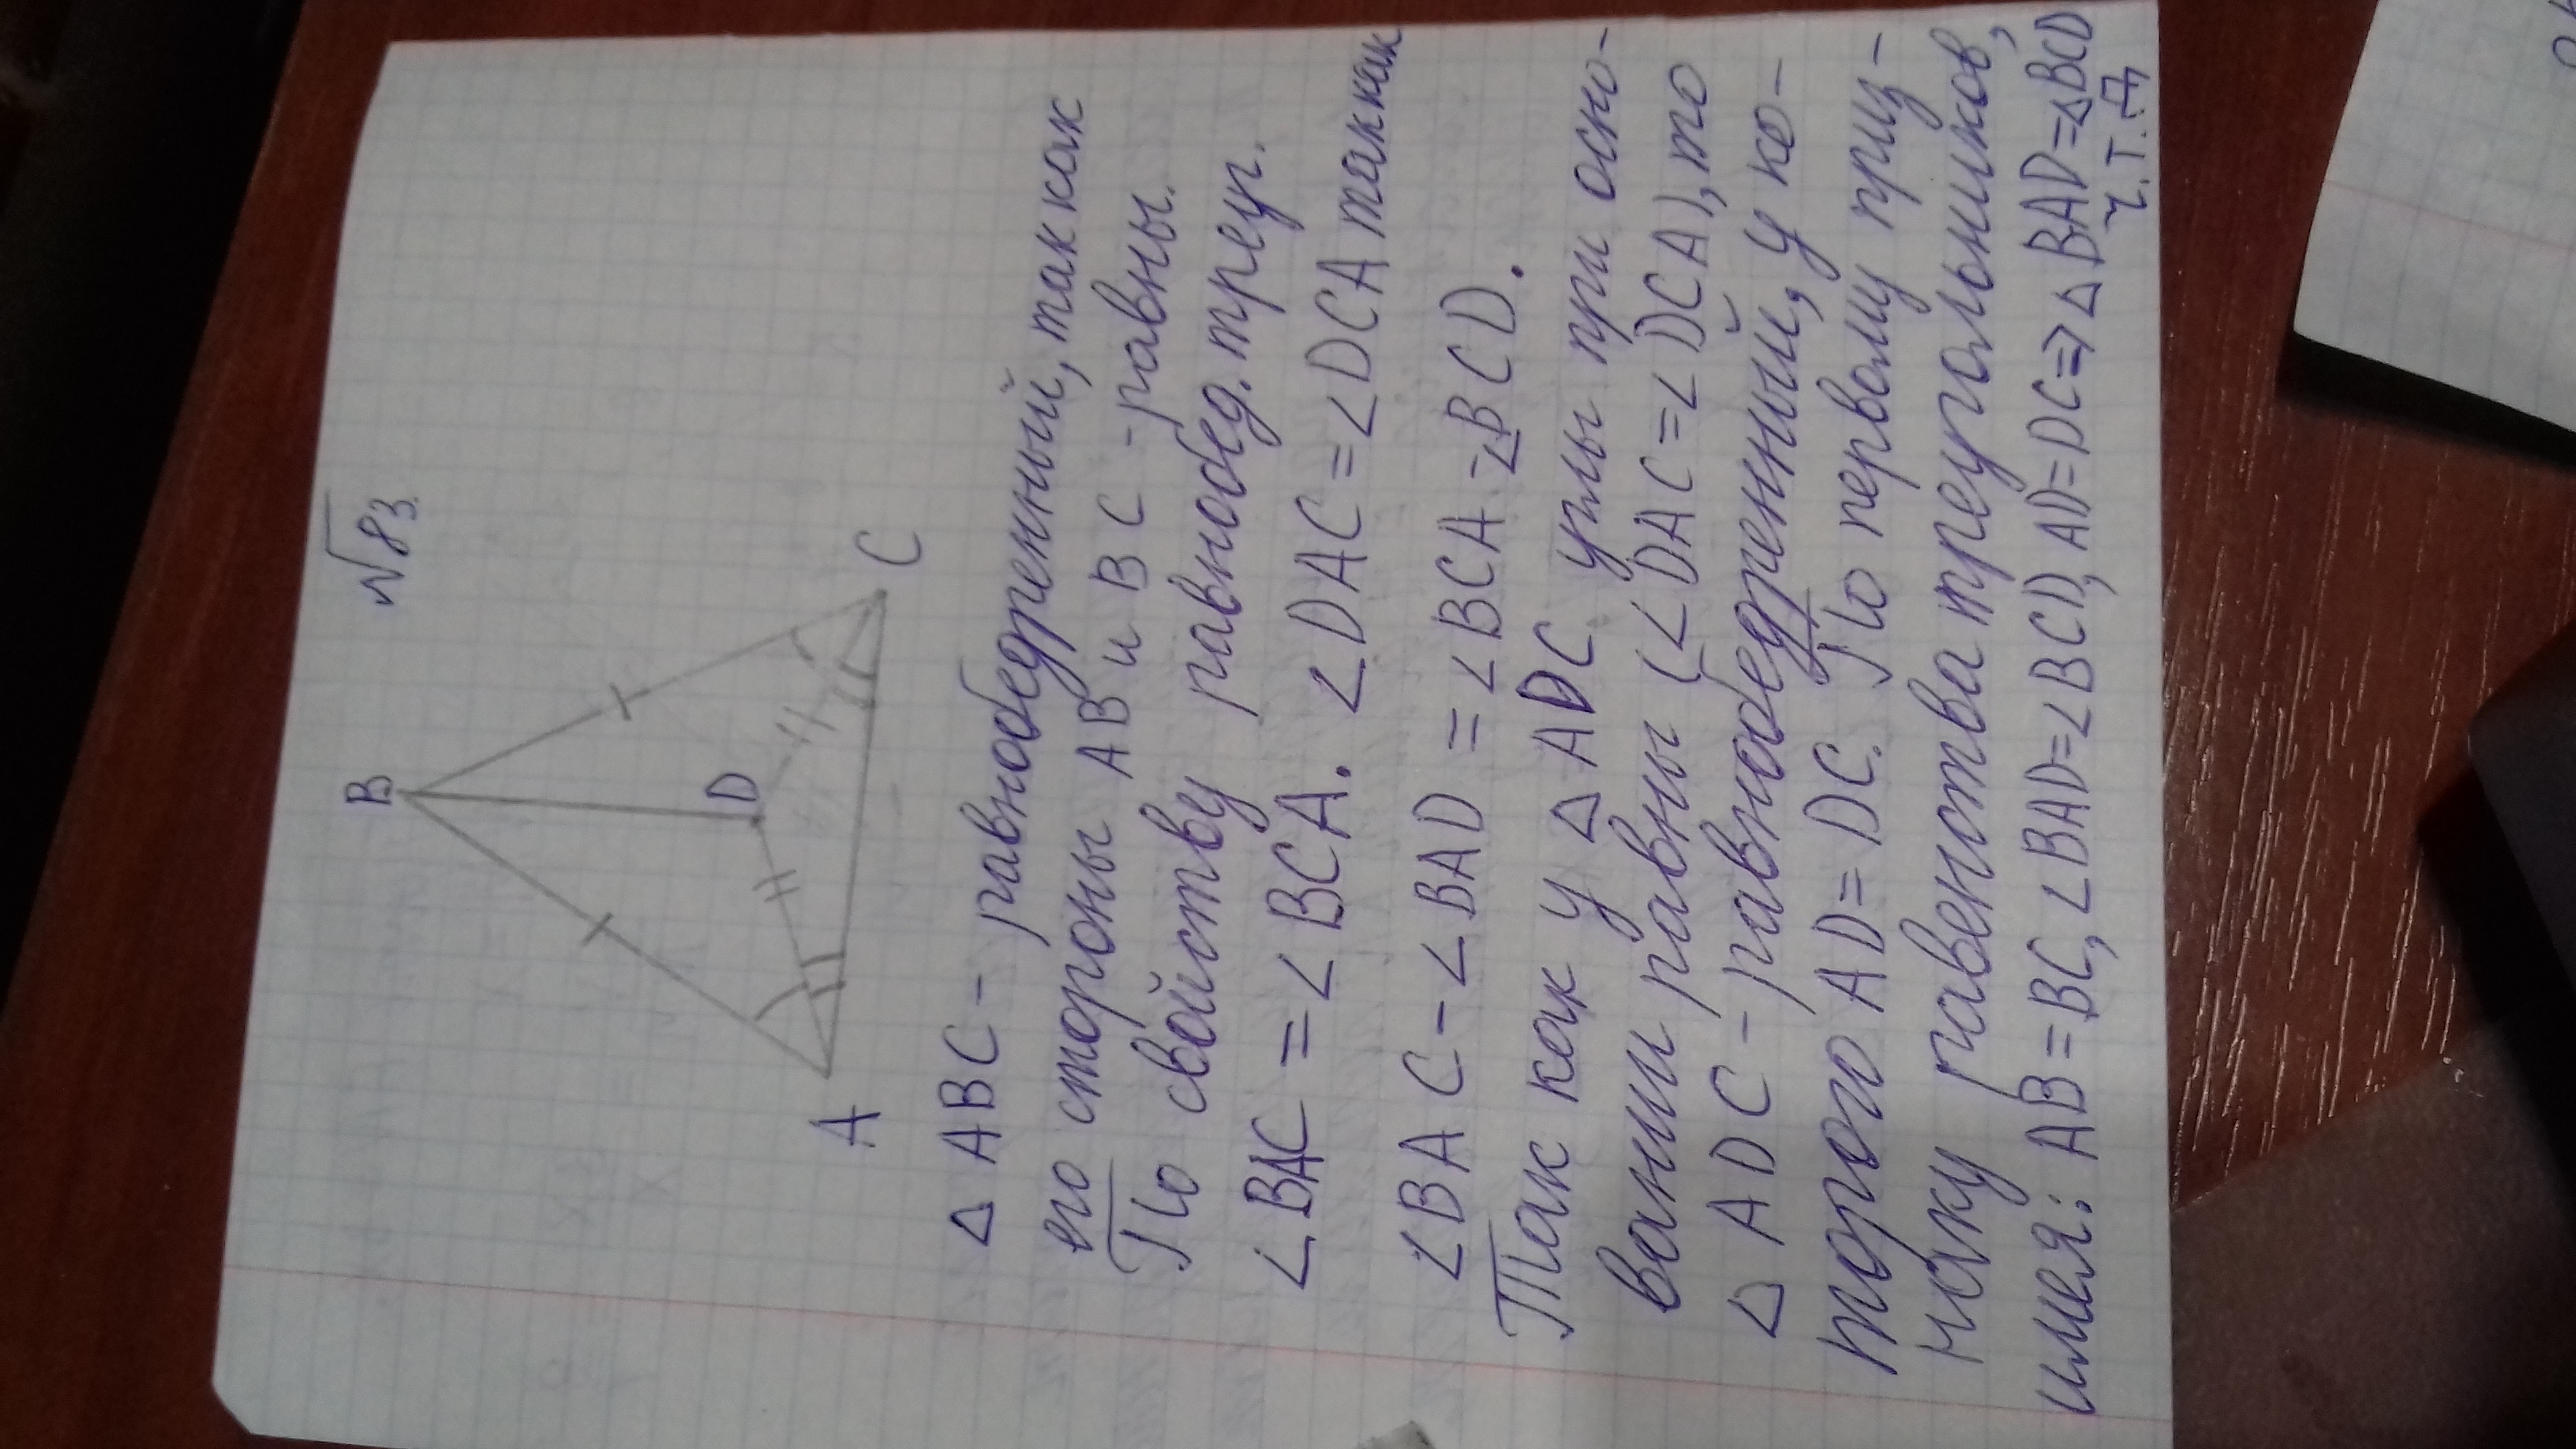 №83.
B
D
A
C
△ABC - равнобедренный, так как
его стороны AB и BC - равны.
По свойству равнобед. треуг.
∠BAC = ∠BCA. ∠DAC = ∠DCA так как
∠BAC - ∠BAD = ∠BCA - ∠BCD.
Так как у △ADC углы при осно-
вании равны (∠DAC = ∠DCA), то
△ADC - равнобедренный, у ко-
торого AD = DC. По первому приз-
наку равенства треугольников,
имея: AB = BC, ∠BAD = ∠BCD, AD = DC ⇒ △BAD = △BCD
ч.т.д